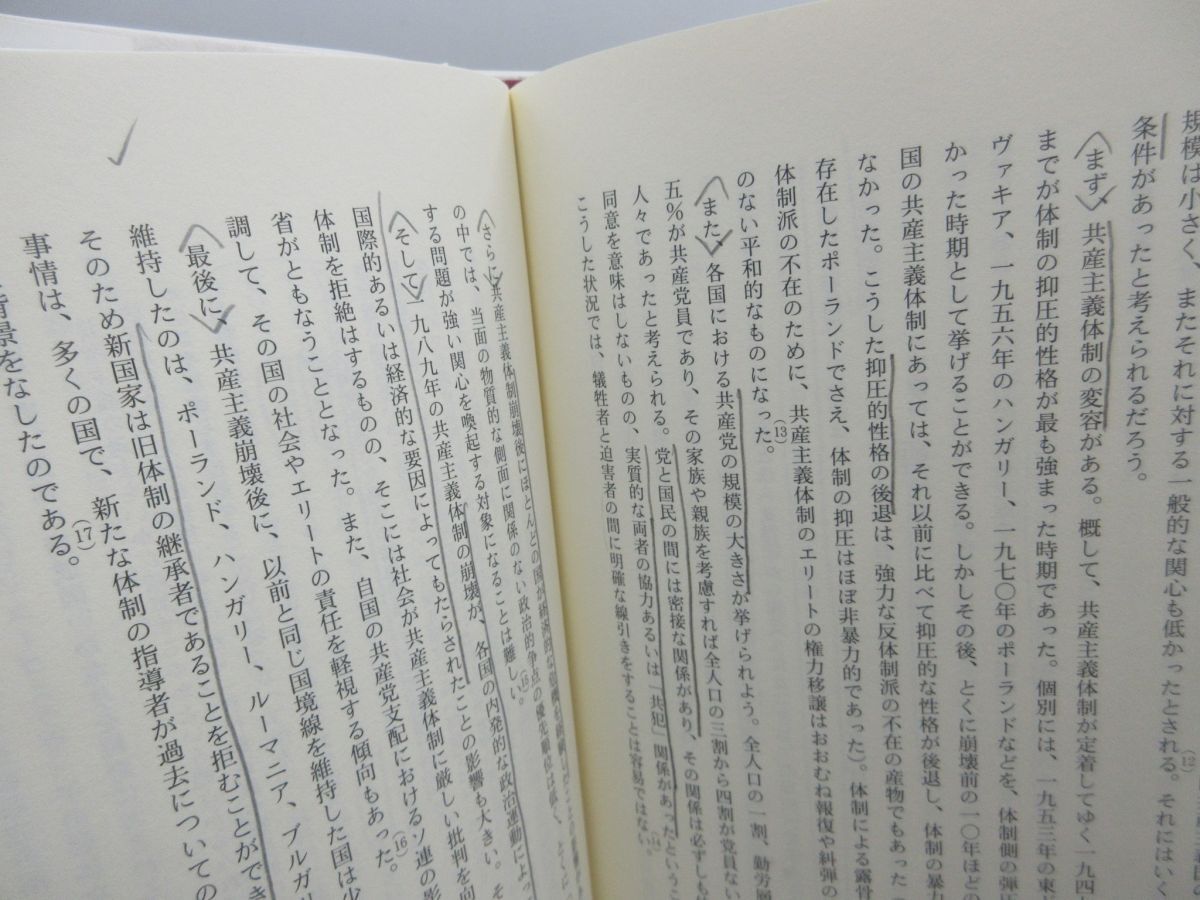 規模は小さく、またそれに対する一般的な関心も低かったとされる。それにはいく
条件があったと考えられるだろう。
まず、共産主義体制の変容がある。概して、共産主義体制が定着してゆく一九四
までが体制の抑圧的性格が最も強まった時期であった。個別には、一九五三年の東
ヴァキア、一九五六年のハンガリー、一九七〇年のポーランドなどを、体制側の弾圧
かった時期として挙げることができる。しかしその後、とくに崩壊前の一〇年ほどの
国の共産主義体制にあっては、それ以前に比べて抑圧的な性格が後退し、体制の暴力
なかった。こうした抑圧的性格の後退は、強力な反体制派の不在の産物でもあった(
存在したポーランドでさえ、体制の抑圧はほぼ非暴力的であった)。体制による露骨
体制派の不在のために、共産主義体制のエリートの権力移譲はおおむね報復や糾弾の
のない平和的なものになった。(13)
また、各国における共産党の規模の大きさが挙げられよう。全人口の一割、勤労層
五%が共産党員であり、その家族や親族を考慮すれば全人口の三割から四割が党員ない
人々であったと考えられる。党と国民の間には密接な関係があり、その関係は必ずしも体
同意を意味はしないものの、実質的な両者の協力あるいは「共犯」関係があったというこ
こうした状況では、犠牲者と迫害者の間に明確な線引きをすることは容易ではない。(14)
さらに共産主義体制崩壊後にほとんどの国が経済的な
の中では、当面の物質的な側面に関係のない政治的争点の優先順位は低く、とくに
する問題が強い関心を喚起する対象になることは難しい。(15)
そして、一九八九年の共産主義体制の崩壊が、各国の内発的な政治運動によっ
国際的あるいは経済的な要因によってもたらされたことの影響も大きい。そ
体制を拒絶はするものの、そこには社会が共産主義体制に厳しい批判を向
省がともなうこととなった。また、自国の共産党支配におけるソ連の影
調して、その国の社会やエリートの責任を軽視する傾向もあった。(16)
最後に、共産主義崩壊後に、以前と同じ国境線を維持した国は少
維持したのは、ポーランド、ハンガリー、ルーマニア、ブルガ
そのため新国家は旧体制の継承者であることを拒むことができ
事情は、多くの国で、新たな体制の指導者が過去についての
背景をなしたのである。(17)